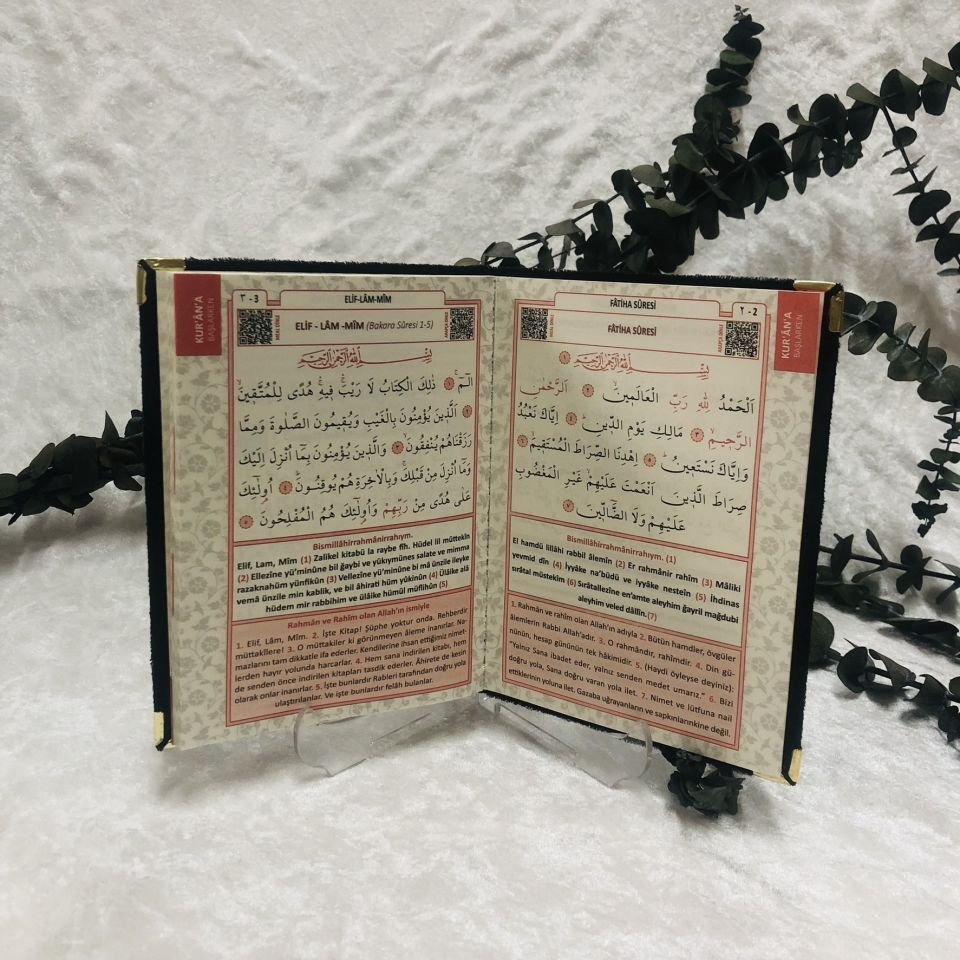 KUR'ÂN'A
BAŞLARKEN
FÂTİHA SÛRESİ
٢ - 2
MEAL DİNLE
FÂTİHA SÛRESİ
ARAPÇA DİNLE
بِسْمِ اللّٰهِ الرَّحْمٰنِ الرَّحِيمِ ١
اَلْحَمْدُ لِلّٰهِ رَبِّ الْعَالَمِينَۙ ٢ اَلرَّحْمٰنِ
الرَّحِيمِۙ ٣ مَالِكِ يَوْمِ الدِّينِۜ ٤ اِيَّاكَ نَعْبُدُ
وَاِيَّاكَ نَسْتَعِينُۜ ٥ اِهْدِنَا الصِّرَاطَ الْمُسْتَقِيمَۙ ٦
صِرَاطَ الَّذِينَ اَنْعَمْتَ عَلَيْهِمْۙ غَيْرِ الْمَغْضُوبِ
عَلَيْهِمْ وَلَا الضَّٓالِّينَ ٧
Bismillâhirrahmânirrahıym. (1)
El hamdü lillâhi rabbil âlemin (2) Er rahmânir rahîm (3) Mâliki
yevmid dîn (4) İyyâke na'büdü ve iyyâke nesteîn (5) İhdinas
sırâtal müstekîm (6) Sırâtallezîne en'amte aleyhim ğayril mağdubi
aleyhim veled dâllîn.(7)
1. Rahmân ve rahîm olan Allah'ın adıyla 2. Bütün hamdler, övgüler
âlemlerin Rabbi Allah'adır. 3. O rahmândır, rahîmdir. 4. Din gü-
nünün, hesap gününün tek hâkimidir. 5. (Haydi öyleyse deyiniz):
"Yalnız Sana ibadet eder, yalnız senden medet umarız." 6. Bizi
doğru yola, Sana doğru varan yola ilet. 7. Nimet ve lütfuna nail
ettiklerinin yoluna ilet. Gazaba uğrayanların ve sapkınlarınkine değil.
KUR'ÂN'A
BAŞLARKEN
٣ - 3
ELİF-LÂM-MÎM
MEAL DİNLE
ELİF - LÂM -MÎM (Bakara Sûresi 1-5)
ARAPÇA DİNLE
بِسْمِ اللّٰهِ الرَّحْمٰنِ الرَّحِيمِ
الٓمٓۚ ١ ذٰلِكَ الْكِتَابُ لَا رَيْبَۚ فِيهِۚ هُدًى لِلْمُتَّقِينَۙ
٢ اَلَّذِينَ يُؤْمِنُونَ بِالْغَيْبِ وَيُقِيمُونَ الصَّلٰوةَ وَمِمَّا
رَزَقْنَاهُمْ يُنْفِقُونَۙ ٣ وَالَّذِينَ يُؤْمِنُونَ بِمَٓا اُنْزِلَ اِلَيْكَ
وَمَٓا اُنْزِلَ مِنْ قَبْلِكَۚ وَبِالْاٰخِرَةِ هُمْ يُوقِنُونَۜ ٤ اُو۬لٰٓئِكَ
عَلٰى هُدًى مِنْ رَبِّهِمْ وَاُو۬لٰٓئِكَ هُمُ الْمُفْلِحُونَ ٥
Bismillâhirrahmânirrahıym.
Elif, Lam, Mîm (1) Zalikel kitabü la raybe fîh. Hüdel lil müttekîn
(2) Ellezîne yü'minûne bil ğaybi ve yükıymûnes salate ve mimma
razaknahüm yünfikûn (3) Vellezîne yü'minûne bi mâ ünzile ileyke
vemâ ünzile min kablik, ve bil âhirati hüm yûkinûn (4) Ülâike alâ
hüdem mir rabbihim ve ülâike hümül müflihûn (5)
Rahmân ve Rahîm olan Allah'ın ismiyle
1. Elif, Lâm, Mîm. 2. İşte Kitap! Şüphe yoktur onda. Rehberdir
müttakîlere! 3. O müttakiler ki görünmeyen âleme inanırlar. Na-
mazlarını tam dikkatle ifa ederler. Kendilerine ihsan ettiğimiz nimet-
lerden hayır yolunda harcarlar. 4. Hem sana indirilen kitabı, hem
de senden önce indirilen kitapları tasdik ederler. Âhirete de kesin
olarak onlar inanırlar. 5. İşte bunlardır Rableri tarafından doğru yola
ulaştırılanlar. Ve işte bunlardır felâh bulanlar.